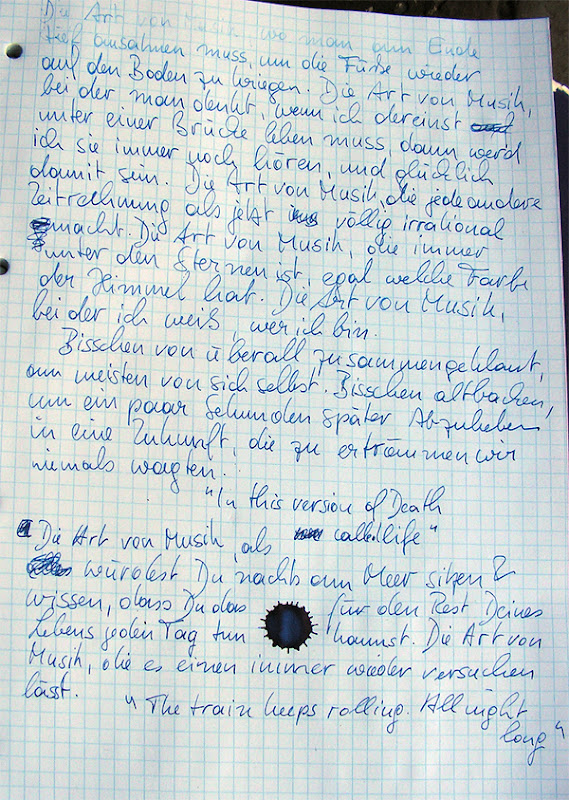 Die Art von Musik, wo man am Ende
tief ausatmen muss, um die Füße wieder
auf den Boden zu kriegen. Die Art von Musik,
bei der man denkt, wenn ich dereinst
unter einer Brücke leben muss dann werd
ich sie immer noch hören, und glücklich
damit sein. Die Art von Musik, die jede andere
Zeitrechnung als jetzt völlig irrational
macht. Die Art von Musik, die immer
unter den Sternen ist, egal welche Farbe
der Himmel hat. Die Art von Musik,
bei der ich weiß, wer ich bin.
Bisschen von überall zusammengeklaut,
am meisten von sich selbst. Bisschen altbacken,
um ein paar Sekunden später Abzuheben
in eine Zukunft, die zu erträumen wir
niemals wagten.
"In this version of Death
called life"
Die Art von Musik, als
würdest Du nachts am Meer sitzen &
wissen, dass Du das für den Rest Deines
Lebens jeden Tag tun kannst. Die Art von
Musik, die es einen immer wieder versuchen
lässt.
"The train keeps rolling. All night
long"